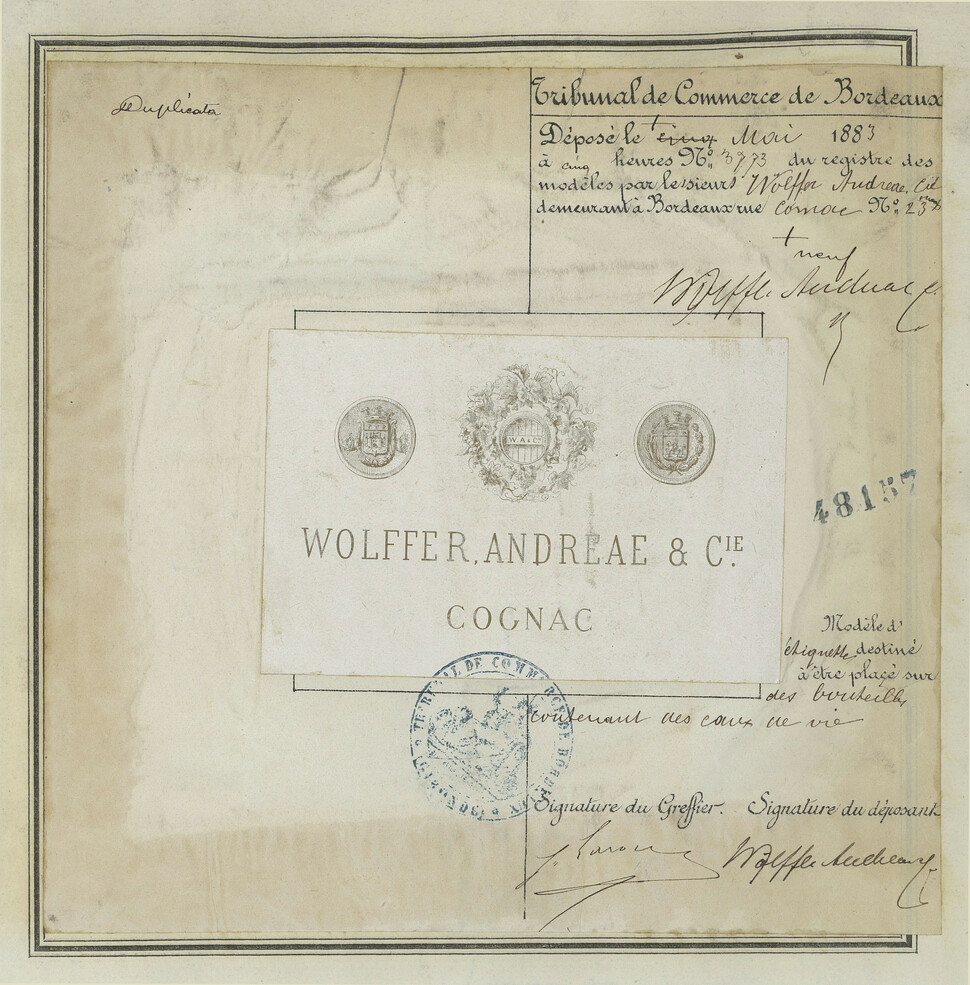 Duplicata
Tribunal de Commerce de Bordeaux
Déposé le + cinq Mai 1883
à cinq heures N° 3773 du registre des
modèles par le sieurs Wolffer Andreae, Cie
demeurant à Bordeaux rue Cornac N° 23
+ neuf
Wolffer Andreae C.
W. A & Cie
WOLFFER, ANDREAE & CIE.
COGNAC
48157
Modèle d'
étiquette destiné
à être placé sur
des bouteilles
contenant des eaux de vie
TRIBUNAL DE COMMERCE DE BORDEAUX
Signature du Greffier. Signature du déposant
Wolffer Andreae C